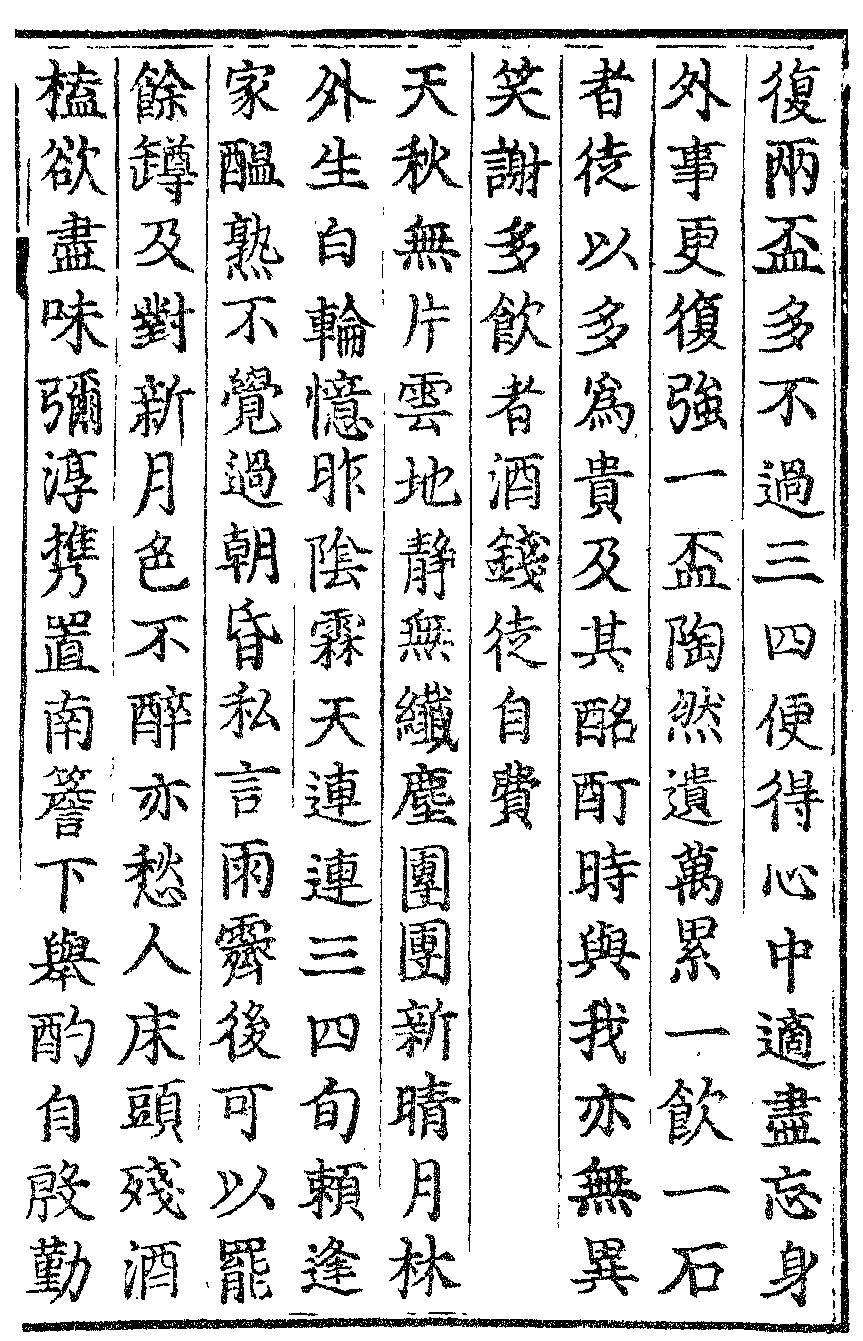 復兩盃多不過三四便得心中適盡忘身
外事更復強一盃陶然遺萬累一飲一石
者徒以多為貴及其酩酊時與我亦無異
笑謝多飲者酒錢徒自費
天秋無片雲地静無纖塵團團新晴月林
外生白輪憶昨陰霖天連連三四旬賴逢
家醖熟不覺過朝昏私言雨霽後可以罷
餘罇及對新月色不醉亦愁人床頭殘酒
榼欲盡味彌淳携置南簷下舉酌自殷勤